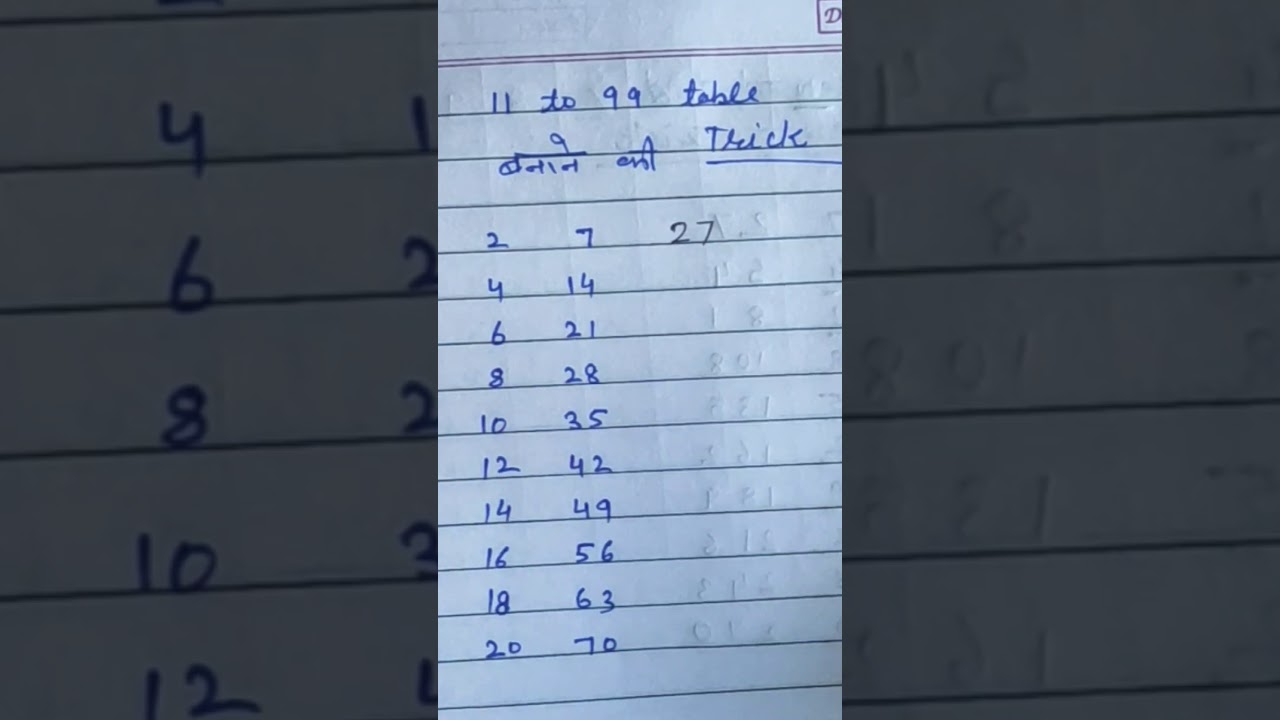 D
11 to 99 table
बनाने की Trick
2 7 27
4 14
6 21
8 28
10 35
12 42
14 49
16 56
18 63
20 70